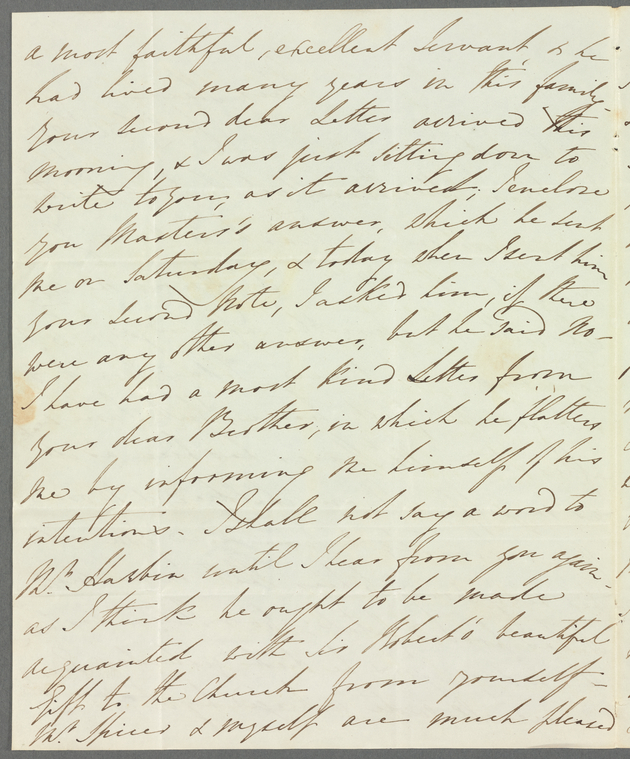 a most faithful, excellent Servant & he
had lived many years in this family-
your second dear Letter arrived this
morning, & I was just sitting down to
write to you, as it arrived; I enclose
you Masters's answer, which he sent
me on Saturday, & today when I sent him
your second Note, I asked him, if there
were any other answer, but he said No-
I have had a most kind Letter from
your dear Brother, in which he flatters
me by informing me himself of his
intentions- I shall not say a word to
Mr. Harbin until I hear from you again-
as I think he ought to be made
acquainted with Sir Robert's beautiful
Gift to the Church from yourself-
Mr. Spicer & myself are much pleased